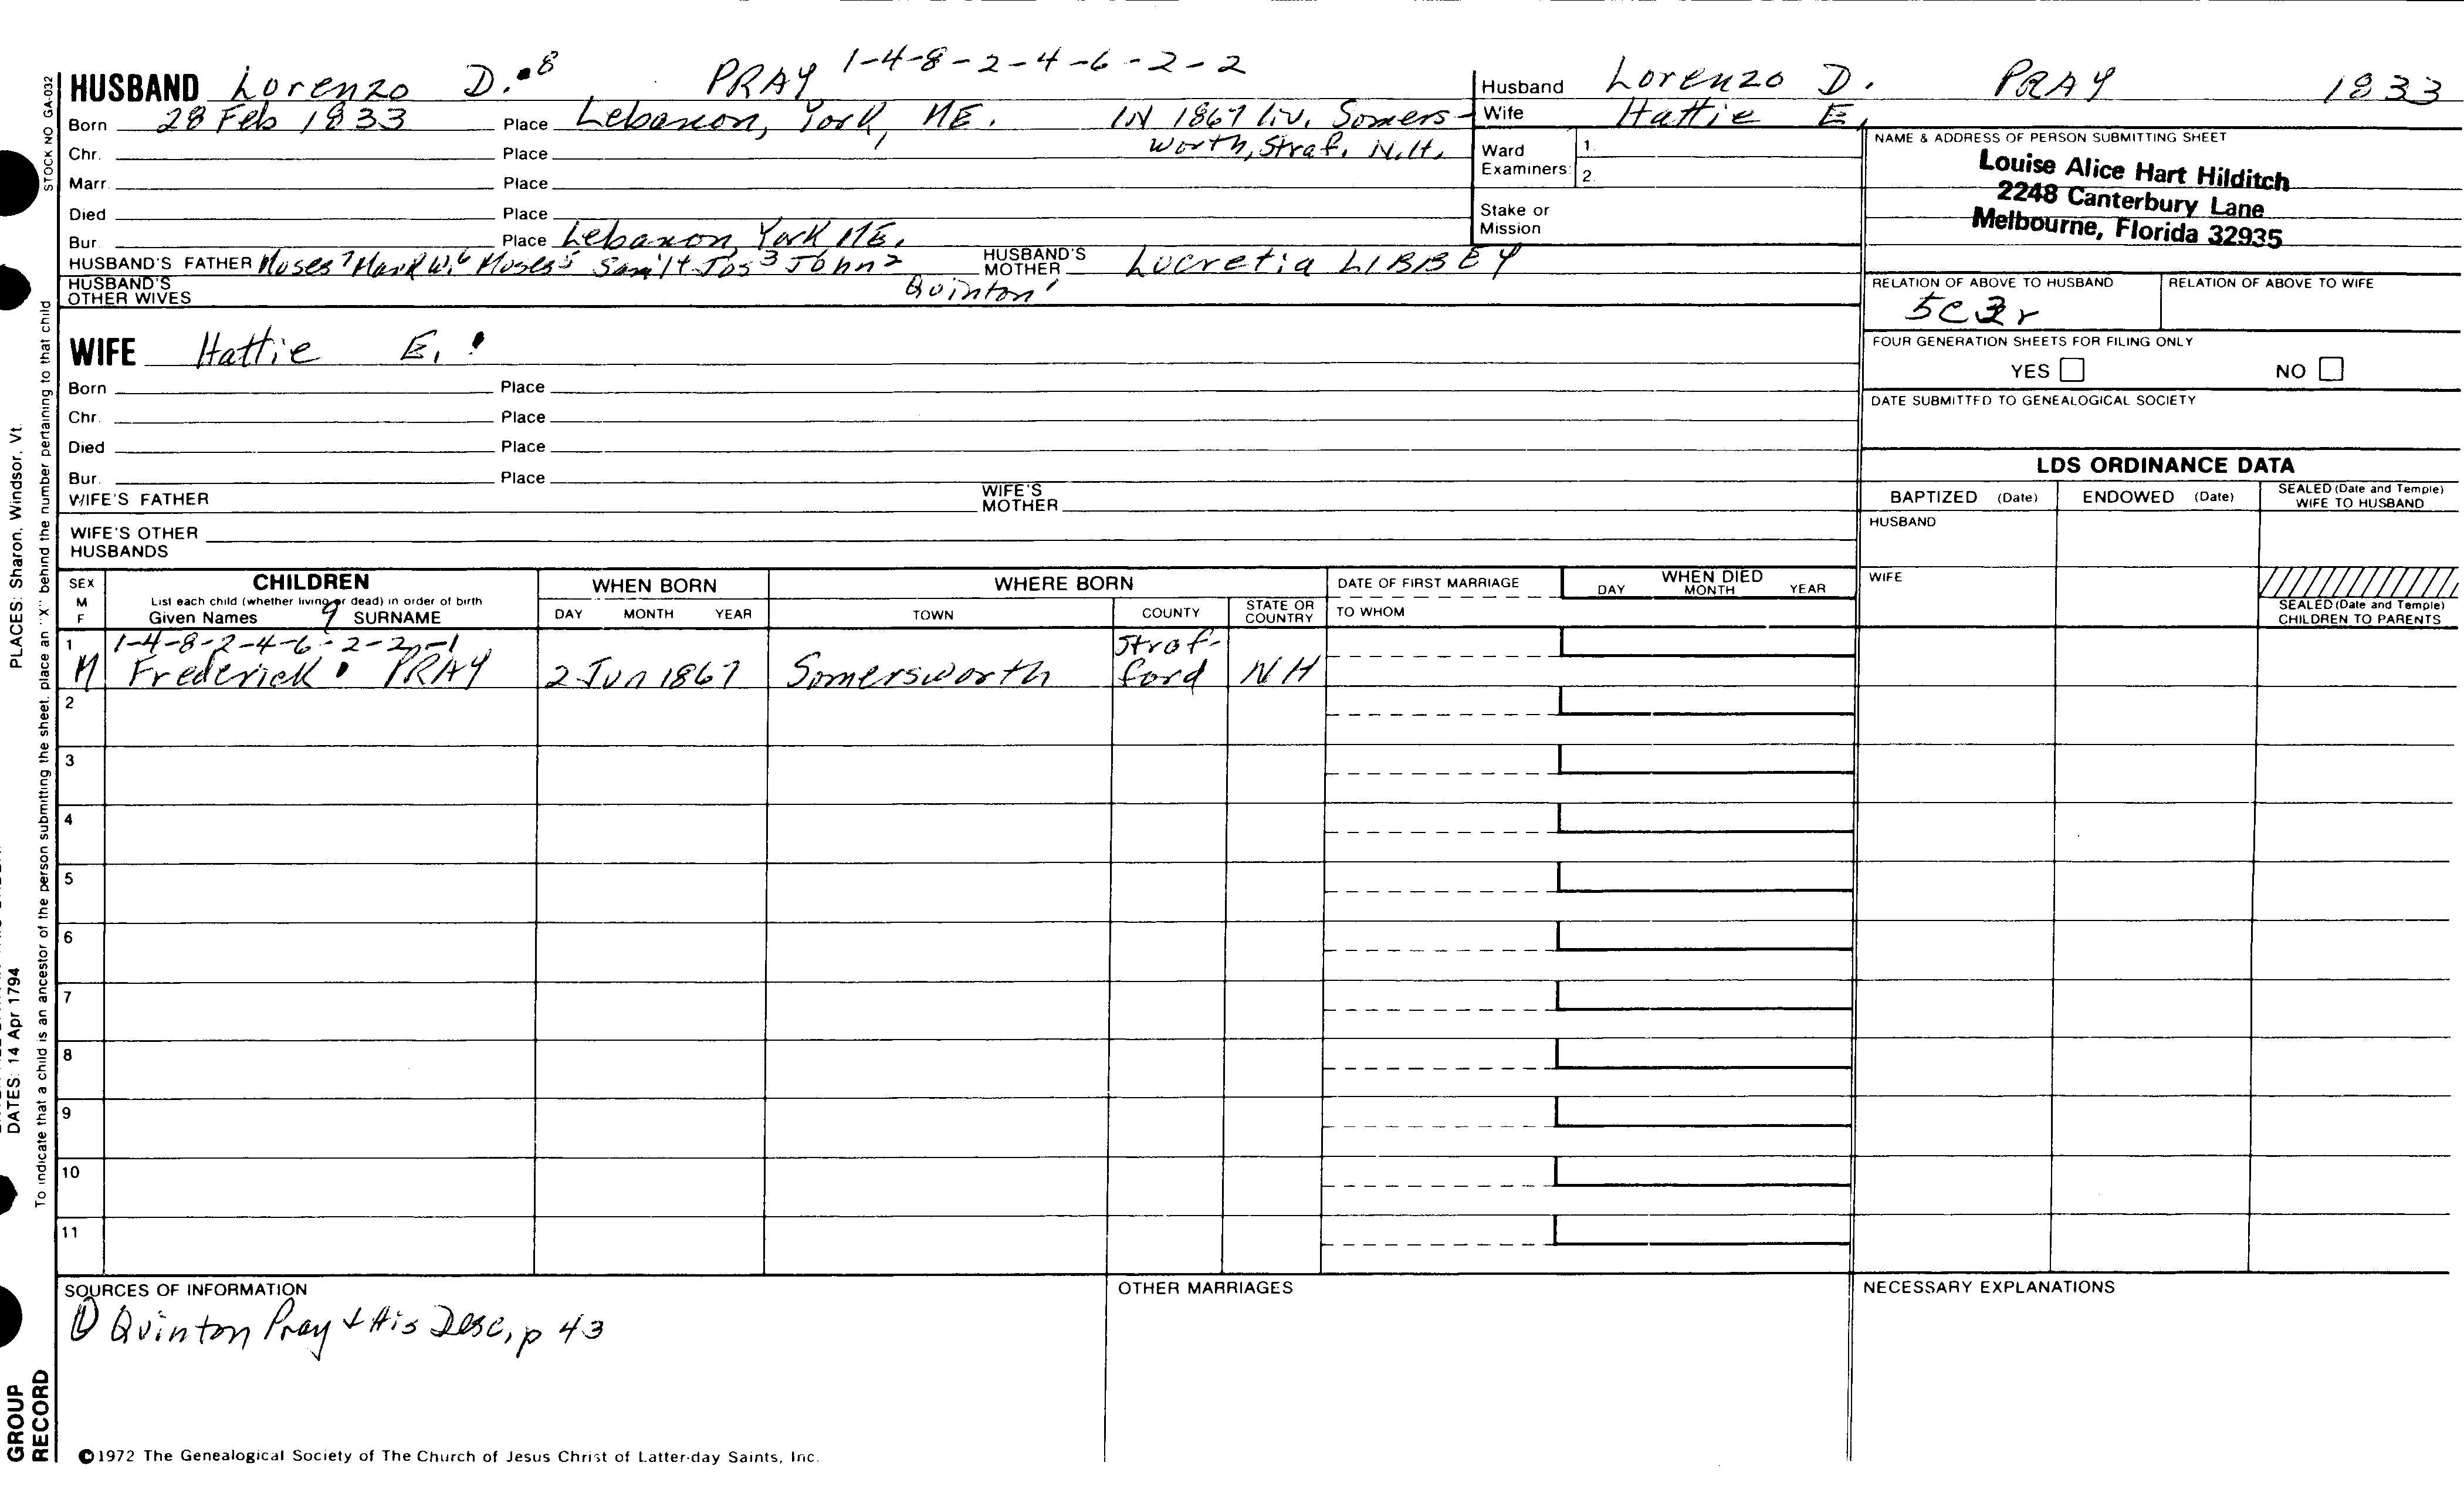 HUSBAND Lorenzo D. 8 PRAY 1-4-8-2-4-6-2-2
Born 28 Feb 1833 Place Lebanon, York, ME. IN 1867 liv. Somers-
Chr. Place worth, Straf. N.H.
Marr. Place
Died Place
Bur. Place Lebanon, York ME.
HUSBAND'S FATHER Moses 7 Mark W. 6 Moses 5 Sam'l 4 Jos 3 John 2
HUSBAND'S MOTHER Lucretia LIBBEY
HUSBAND'S OTHER WIVES Quinton 1
WIFE Hattie E.
Born Place
Chr. Place
Died Place
Bur. Place
WIFE'S FATHER WIFE'S MOTHER
WIFE'S OTHER HUSBANDS
Husband Lorenzo D. PRAY 1833
Wife Hattie E.
Ward Examiners: 1. 2.
Stake or Mission
NAME & ADDRESS OF PERSON SUBMITTING SHEET
Louise Alice Hart Hilditch
2248 Canterbury Lane
Melbourne, Florida 32935
RELATION OF ABOVE TO HUSBAND RELATION OF ABOVE TO WIFE
FOUR GENERATION SHEETS FOR FILING ONLY
YES NO
DATE SUBMITTED TO GENEALOGICAL SOCIETY
LDS ORDINANCE DATA
BAPTIZED (Date) ENDOWED (Date) SEALED (Date and Temple) WIFE TO HUSBAND
HUSBAND
WIFE
SEALED (Date and Temple) CHILDREN TO PARENTS
SEX M F
CHILDREN
List each child (whether living or dead) in order of birth
Given Names 9 SURNAME
WHEN BORN
DAY MONTH YEAR
WHERE BORN
TOWN COUNTY STATE OR COUNTRY
DATE OF FIRST MARRIAGE
TO WHOM
WHEN DIED
DAY MONTH YEAR
1 1-4-8-2-4-6-2-2-1 Straf-
M Frederick PRAY 2 Jun 1867 Somersworth ford NH
2
3
4
5
6
7
8
9
10
11
SOURCES OF INFORMATION
① Quinton Pray & His Desc, p 43
OTHER MARRIAGES
NECESSARY EXPLANATIONS
©1972 The Genealogical Society of The Church of Jesus Christ of Latter-day Saints, Inc.
STOCK NO GA-032
To indicate that a child is an ancestor of the person submitting the sheet, place an "X" behind the number pertaining to that child
PLACES: Sharon, Windsor, Vt.
DATES: 14 Apr 1794
GROUP
RECORD